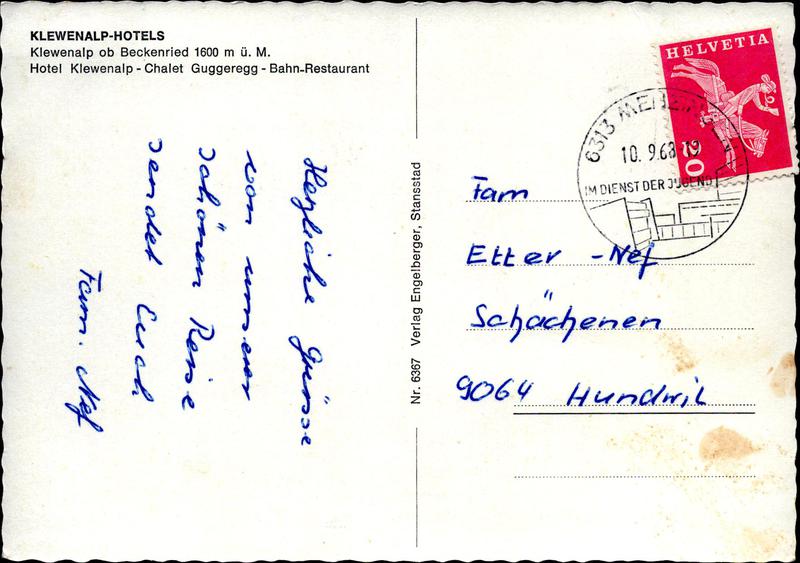 KLEWENALP-HOTELS
Klewenalp ob Beckenried 1600 m ü. M.
Hotel Klewenalp - Chalet Guggeregg - Bahn-Restaurant
Herzliche Grüsse
von unserer
schönen Reise
sendet Euch
Fam. Nef
Nr. 6367 Verlag Engelberger, Stansstad
HELVETIA
10
6313 MENZINGEN
10.9.68-19
IM DIENST DER JUGEND
Fam
Etter - Nef
Schächenen
9064 Hundwil